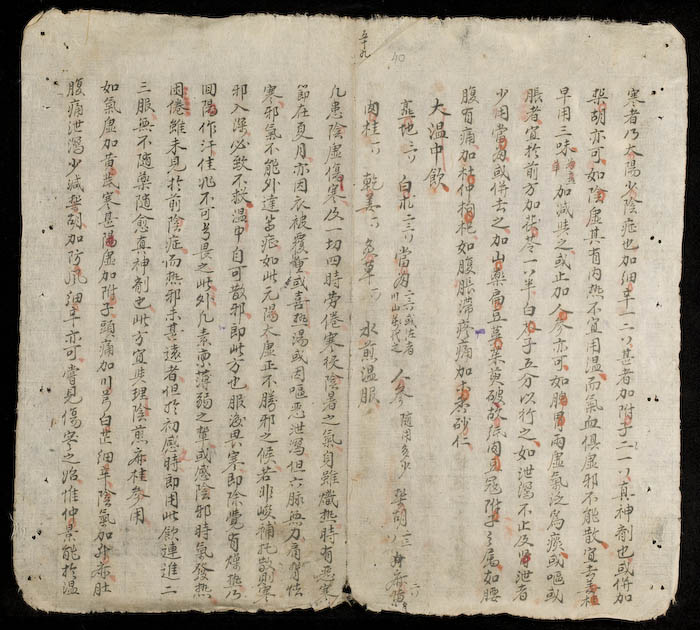 寒者乃太陽少陰症也加細辛一二𠆤甚者加附子二一𠆤真神剤也或併加
柴胡亦可如陰虛其有內熱不宜用温而氣血俱虛邪不能散宜去姜桂
早用三味加減與之或止加人參亦可如脾胃両虛氣泛為痰或嘔或
脹者宜於前方加茯苓一𠆤半白芥子五分以行之如泄瀉不止及腎泄者
少用當归或併去之加山藥扁豆茱萸破故紙肉豆蔻附子之属如腰
腹有痛加杜仲枸杞如腹脹滯疼痛加木香砂仁
大温中飲
熟地 白朮 當归 人參 随用多少 柴胡 麻黄
肉桂 乾姜 炙草 水煎温服
凡患陰虛傷寒及一切四時勞倦寒疫陰暑之氣身雖熾热時有惡寒
節在夏月亦因衣被覆盖或喜热湯或因嘔惡泄瀉但六脉無力肩背怯
寒邪氣不能外達等症如此元陽大虛正不勝邪之候若非峻補托散則寒
邪入深必致不救温中自可散邪即此方也服後畏寒即除覺有燥热乃
囬陽作汗佳兆不可為畏之此外凡素禀薄弱之輩或感陰邪時氣發热
困倦雖未見於前陰症而热邪未甚遠者但於初感時即用此飲連進二
三服無不随藥随愈真神剤也此方宜與理陰煎麻桂參用
如氣虛加黄芪寒甚陽虛加附子頭痛加川芎白芷細辛陰氣加升麻肚
腹痛泄瀉少減柴胡加防風細辛亦可嘗見傷寒之治惟仲景能於温
五十九
40